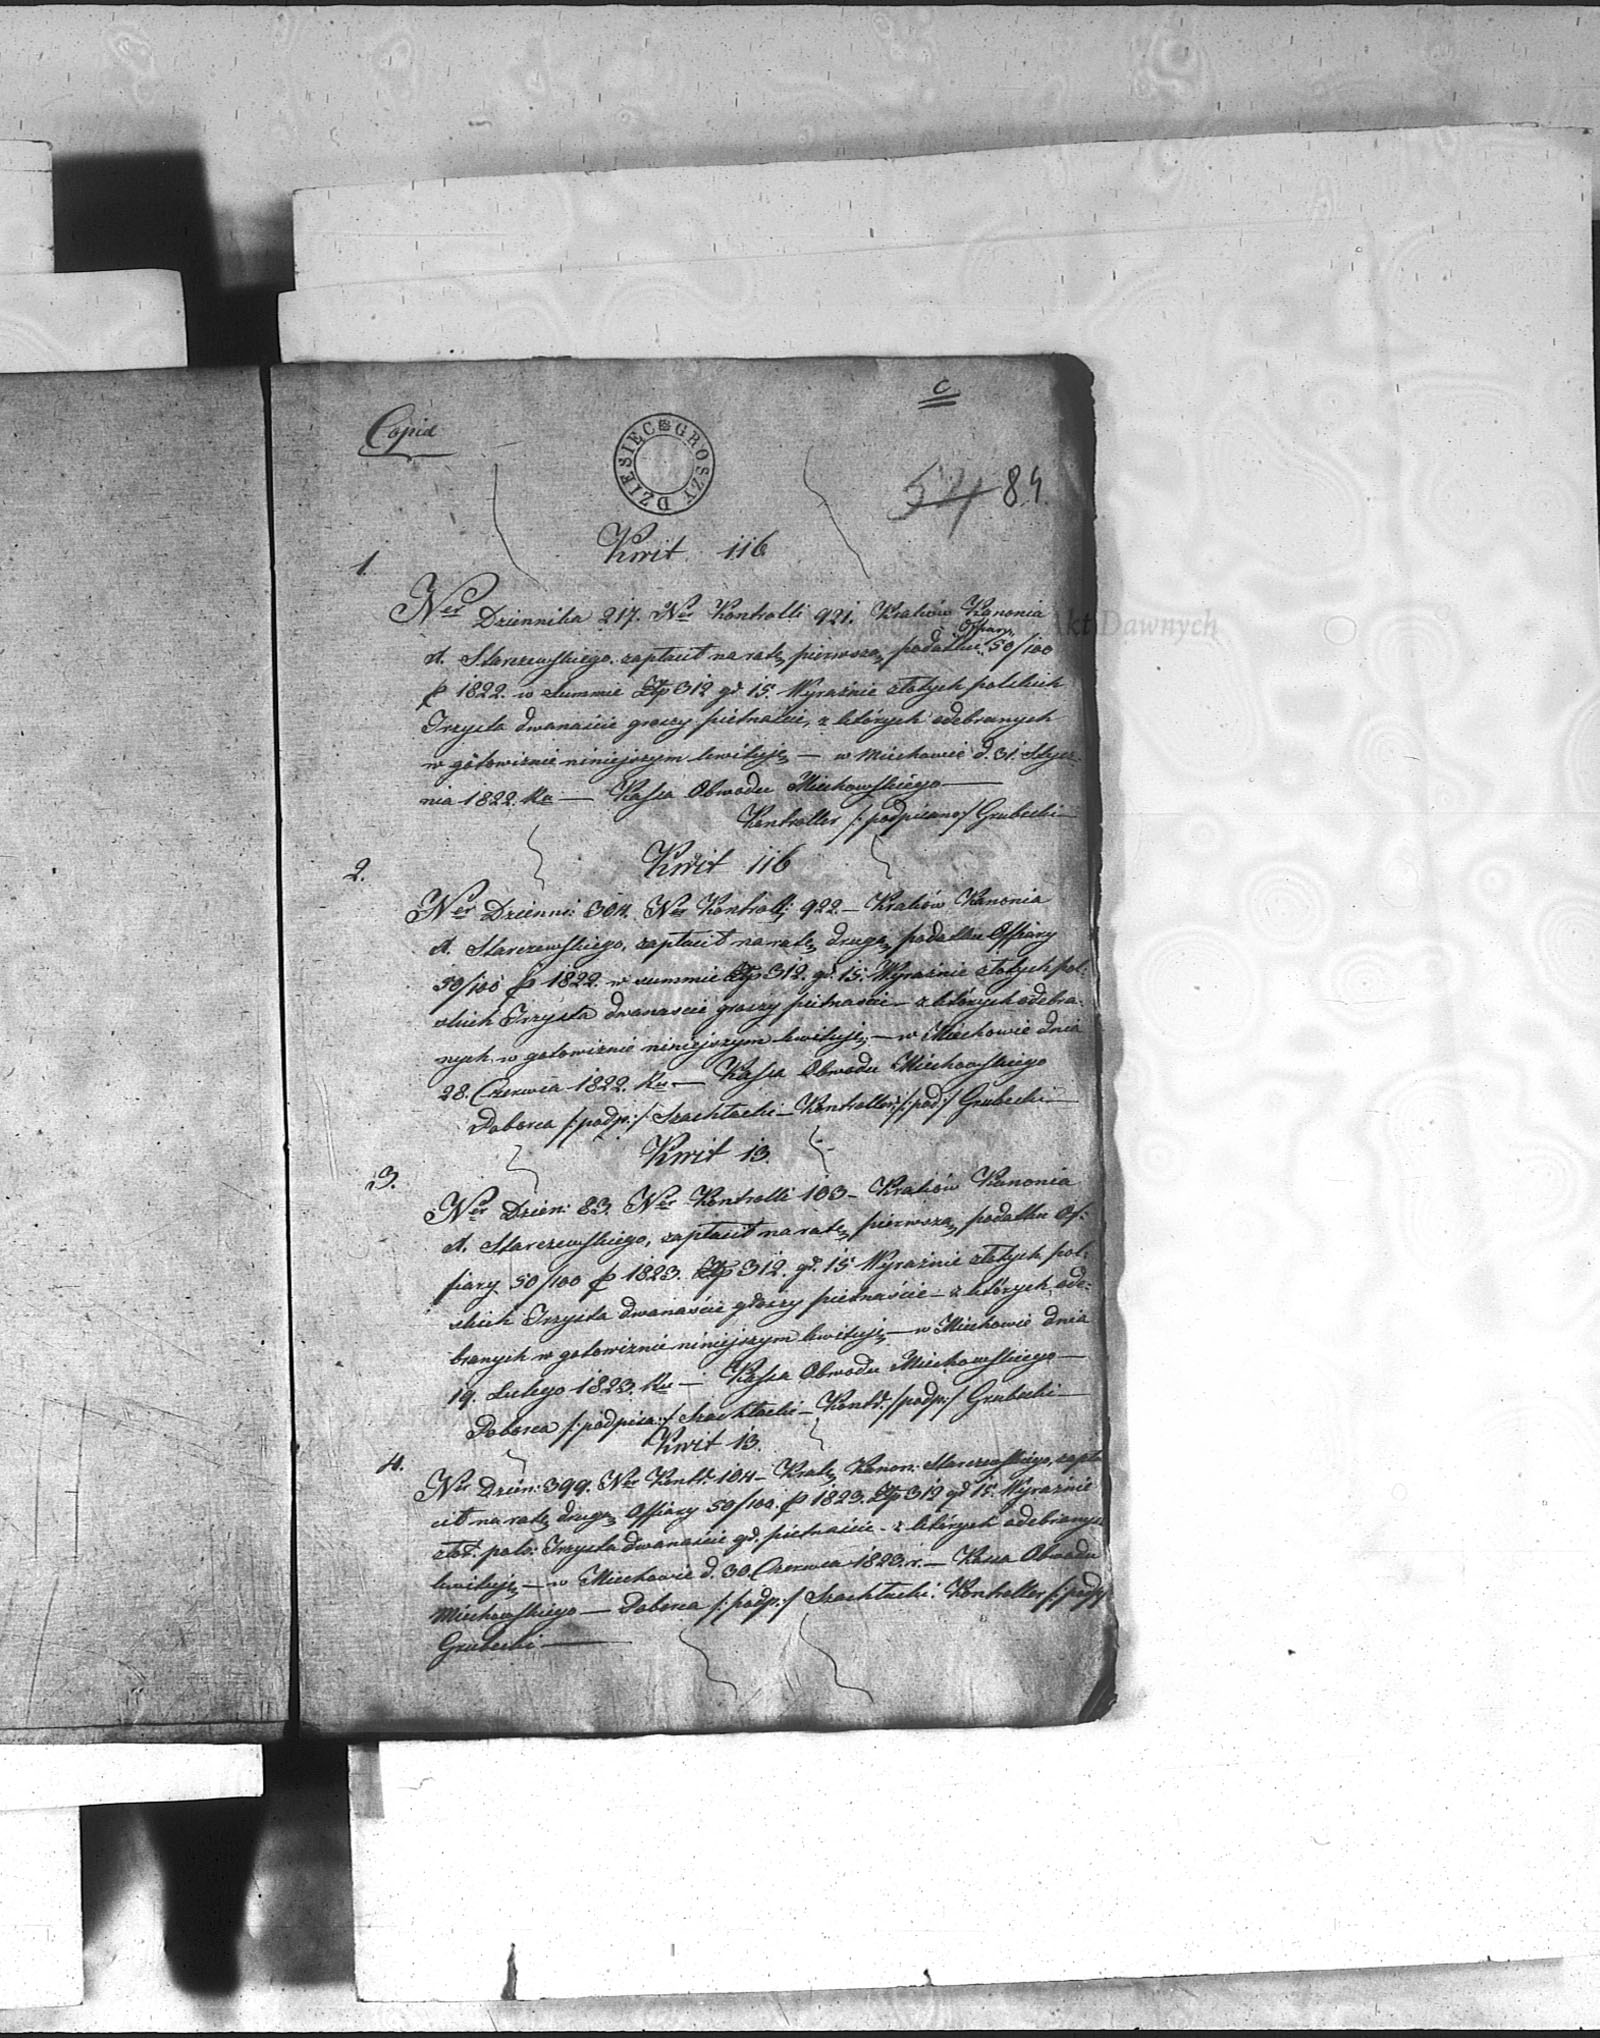 C
Copia
DZIESIĘC GROSZY
54 84.
Kwit 116
1.
Ner Dziennika 217. Ner Kontrolli 921. Kraków Kanonia
Offiary
A. Starczewskiego. zapłacił na ratę pierwszą podatku 50/100
p 1822. w summie Złp 312 gr. 15. Wyraźnie złotych polskich
Trzysta dwanaście groszy piętnaście, z których odebranych
w gotowiznie niniejszym kwituję — w Miechowie d. 31. Stycz-
nia 1822. Ru — Kassa Obwodu Miechowskiego —
Kontroller /: podpisano/ Grubecki —
Kwit 116
2.
Ner Dzienni: 304. Ner Kontroli: 922. — Kraków Kanonia
A. Starczewskiego, zapłacił na ratę drugą podatku Offiary
50/100 p 1822. w summie Złp 312. gr. 15. Wyraźnie złotych pol:
skich Trzysta dwanaście groszy pietnaście — z których odebra:
nych w gotowiznie niniejszym kwituję — w Miechowie dnia
28. Czerwca 1822. Ru — Kassa Obwodu Miechowskiego
Poborca /: podp:/ Szachłacki — Kontroller /: pod:/ Grubecki —
Kwit 13.
3.
Ner Dzien: 83. Ner Kontrolli 103 — Kraków Kanonia
A. Starczewskiego, zapłacił na ratę pierwszą podatku Of:
fiary 50/100 p 1823. Złp 312. gr. 15 Wyraźnie złotych pol:
skich Trzysta dwanaście groszy pietnaście — z których ode:
branych w gotowiznie niniejszym kwituję — w Miechowie dnia
19. Lutego 1823. Ru — Kassa Obwodu Miechowskiego —
Poborca /: podpisa:/ Szachłacki — Kontr. /: podp:/ Grubecki —
Kwit 13.
4.
Ner Dzien: 399. Ner Kontr. 104 — Krak. Kanon: Starczewskiego, zapła
cił na ratę drugą Offiary 50/100. p 1823. Złp 312 gr 15. Wyraźnie
złot. pols: Trzysta dwanaście gr. pietnaście — z których odebranych
kwituję — w Miechowie d. 30. Czerwca 1823. r. — Kassa Obwodu
Miechowskiego — Poborca /: podp:/ Szachłacki: Kontroller /: podp:/
Grubecki —